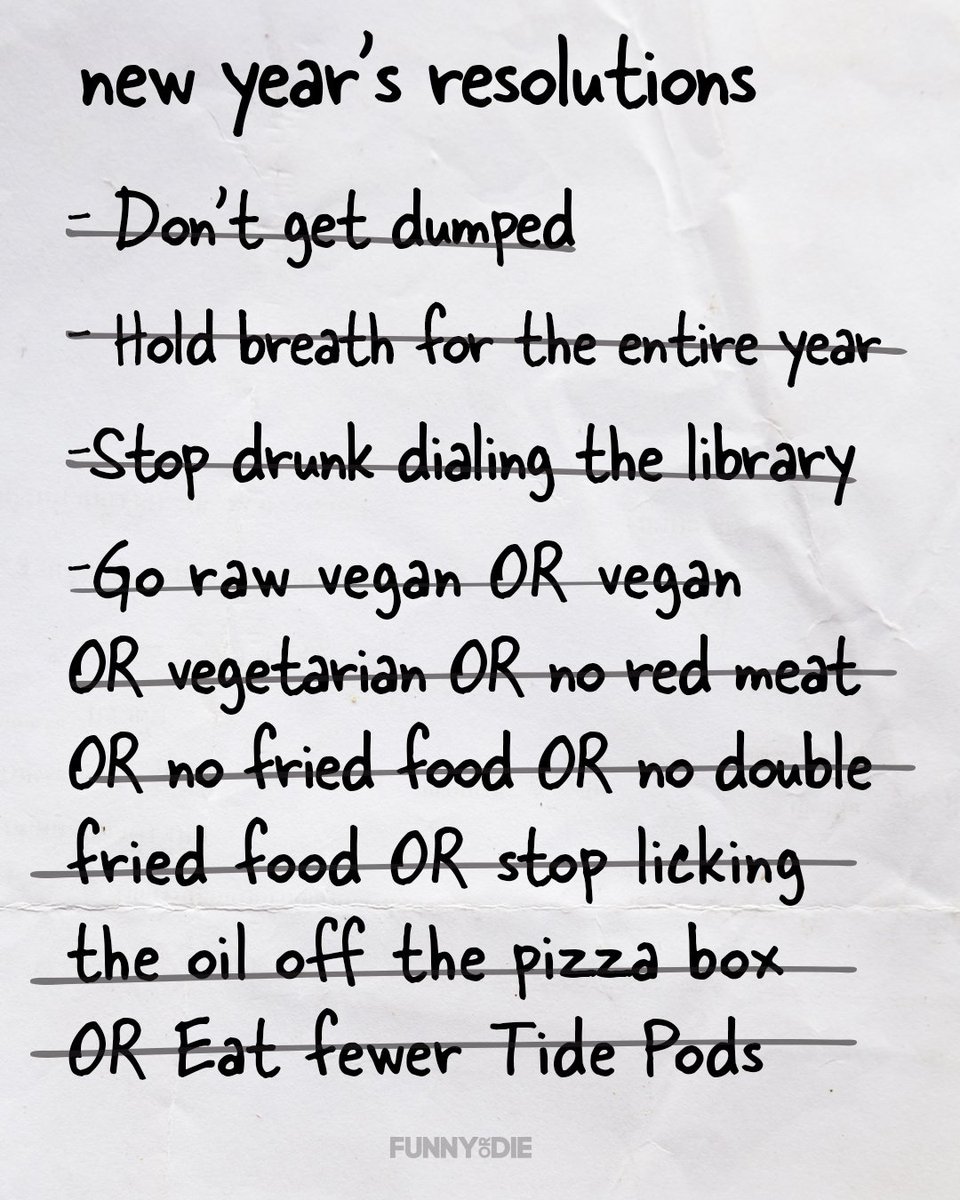 new year's resolutions
- Don't get dumped
- Hold breath for the entire year
-Stop drunk dialing the library
-Go raw vegan OR vegan
OR vegetarian OR no red meat
OR no fried food OR no double
fried food OR stop licking
the oil off the pizza box
OR Eat fewer Tide Pods
FUNNY OR DIE